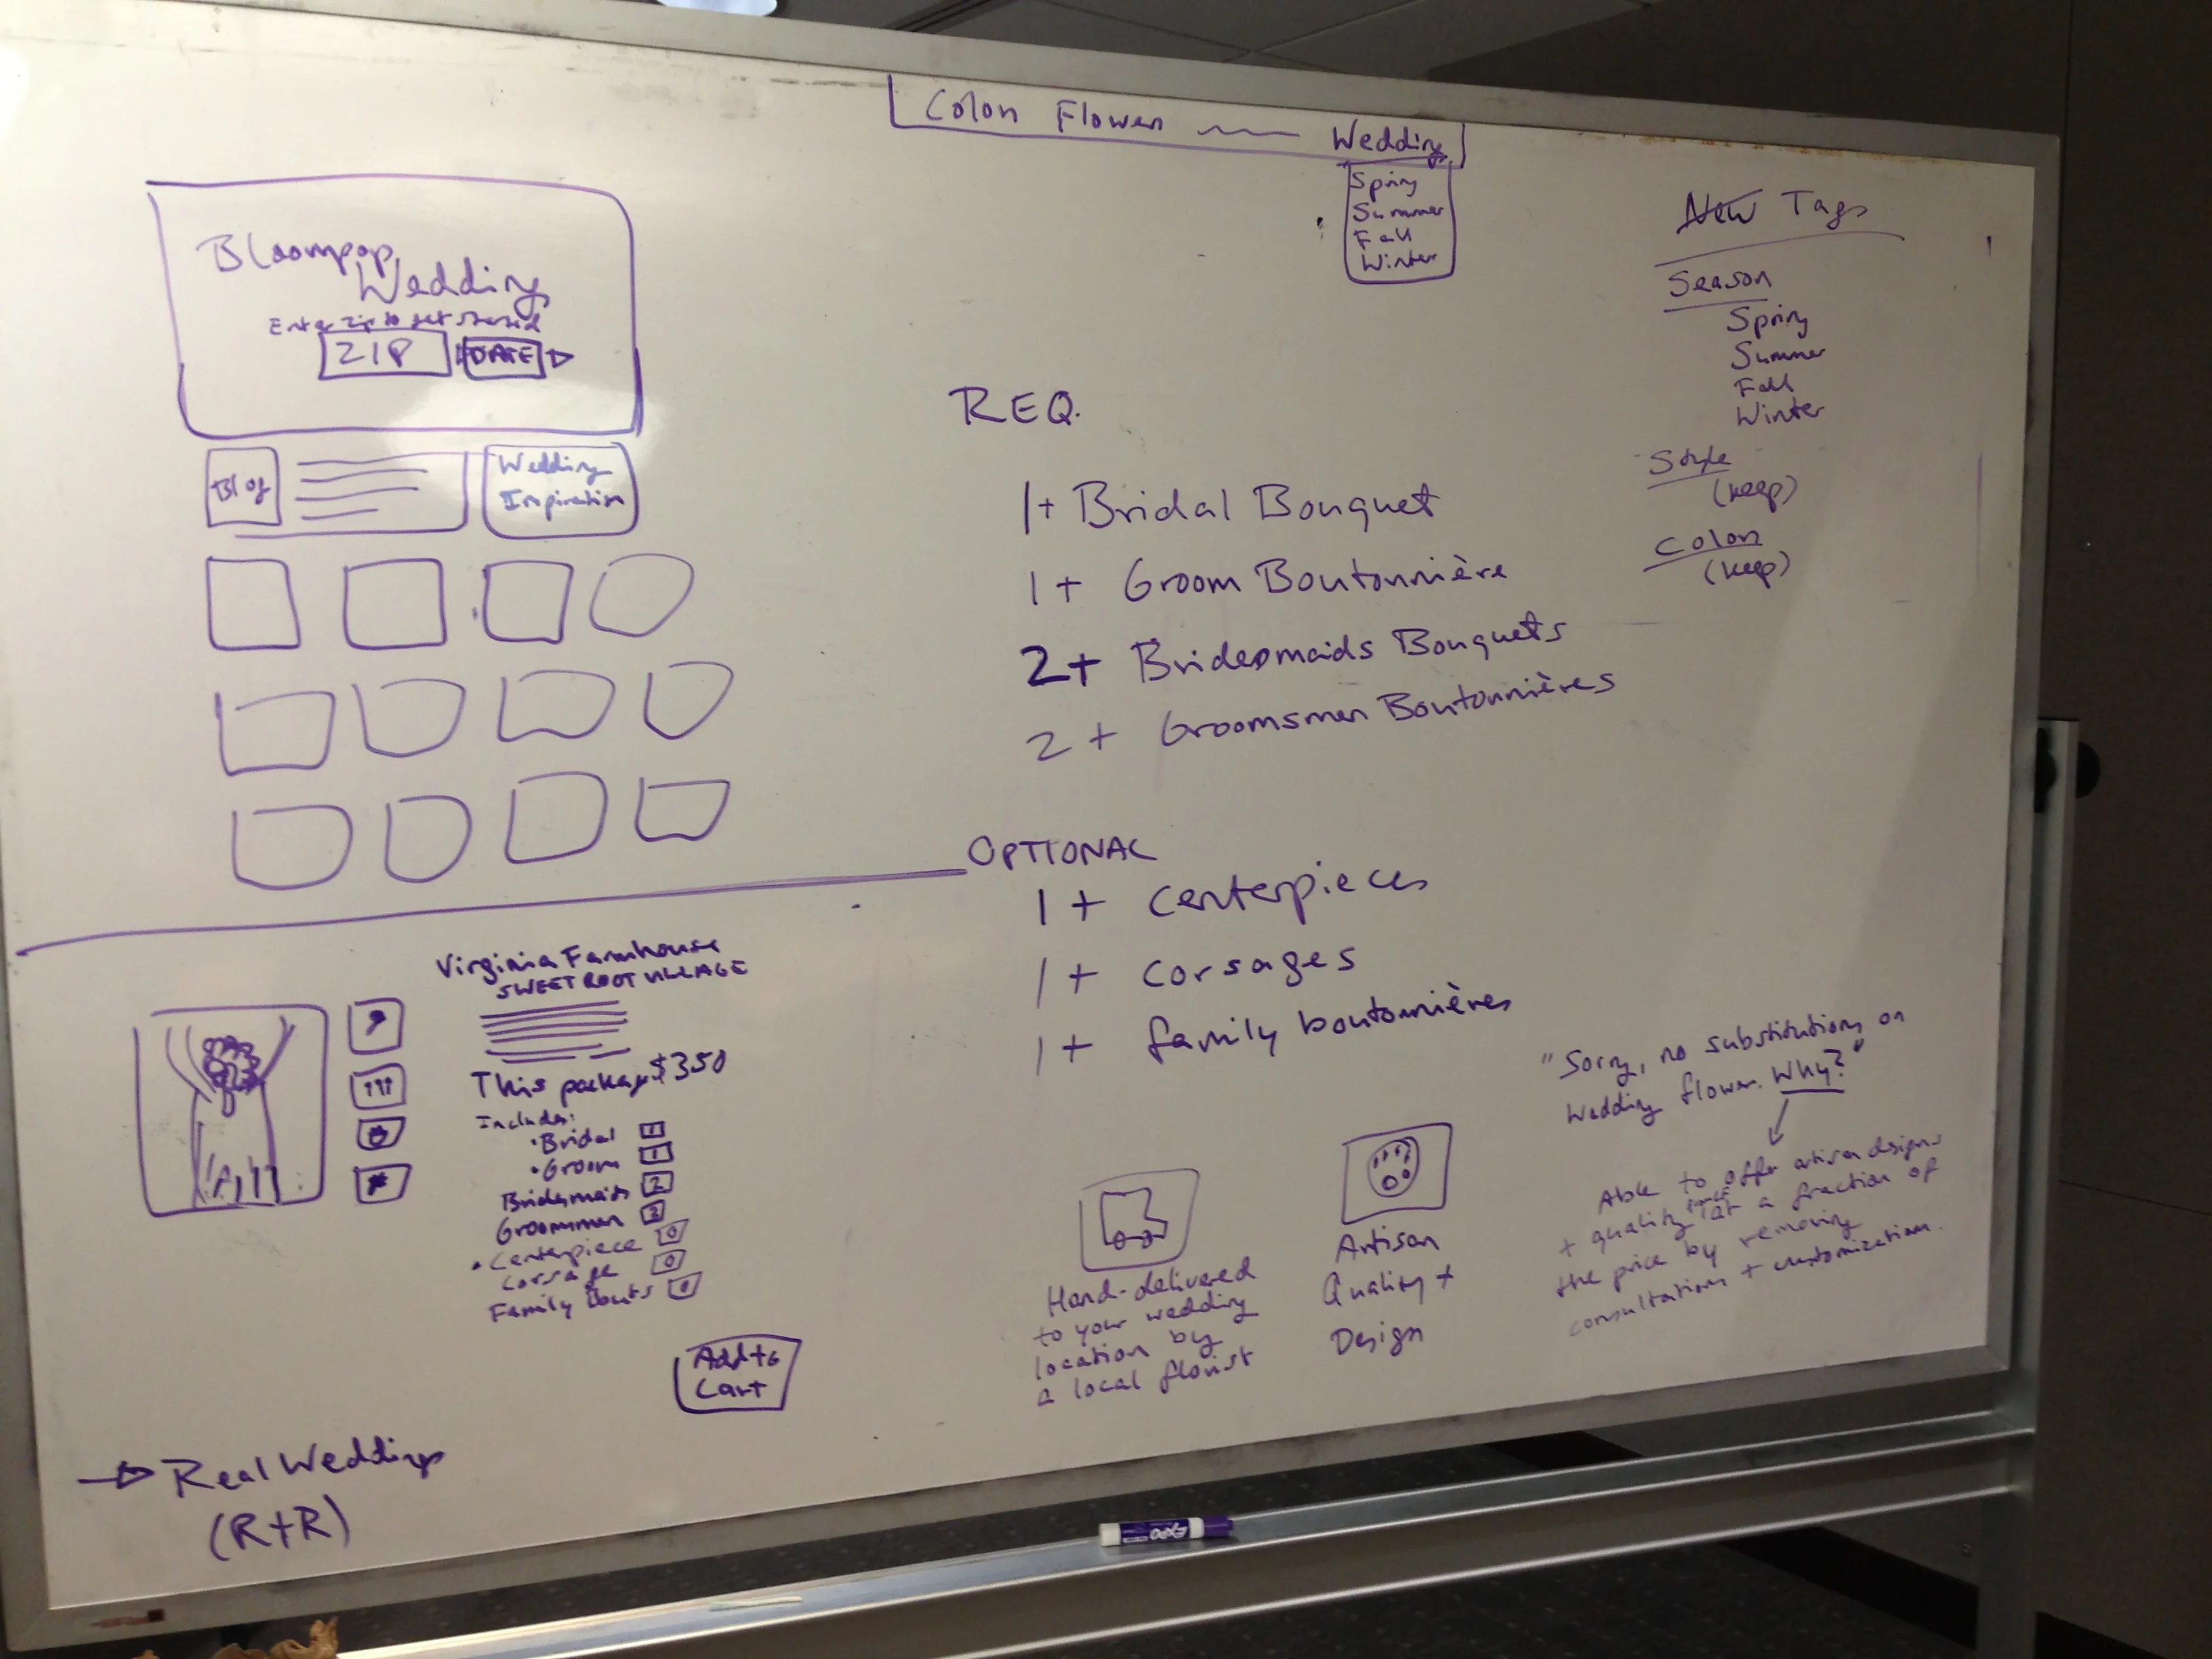 Color Flower Wedding
Spring
Summer
Fall
Winter
Bloompop
Wedding
Enter zip to get started
ZIP DATE
Blog
Wedding
Inspiration
REQ.
1+ Bridal Bouquet
1+ Groom Boutonnière
2+ Bridesmaids Bouquets
2+ Groomsmen Boutonnières
OPTIONAL
1+ Centerpieces
1+ Corsages
1+ family boutonnières
New Tags
Season
Spring
Summer
Fall
Winter
Style
(keep)
Color
(keep)
Virginia Farmhouse
SWEET ROOT VILLAGE
This package $350
Includes:
• Bridal 1
• Groom 1
Bridesmaids 2
Groomsmen 2
• Centerpiece 0
Corsage 0
Family bouts 0
Add to
Cart
Real Weddings
(R+R)
Hand-delivered
to your wedding
location by
a local florist
Artisan
Quality +
Design
"Sorry, no substitutions on
wedding flower. Why?"
Able to offer artisan designs
+ quality at a fraction of
the price by removing
consultations + customization.
EXPO